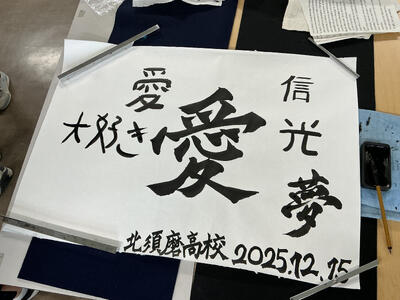 信
光
夢
愛
愛
大好き
北須磨高校 2025.12.15